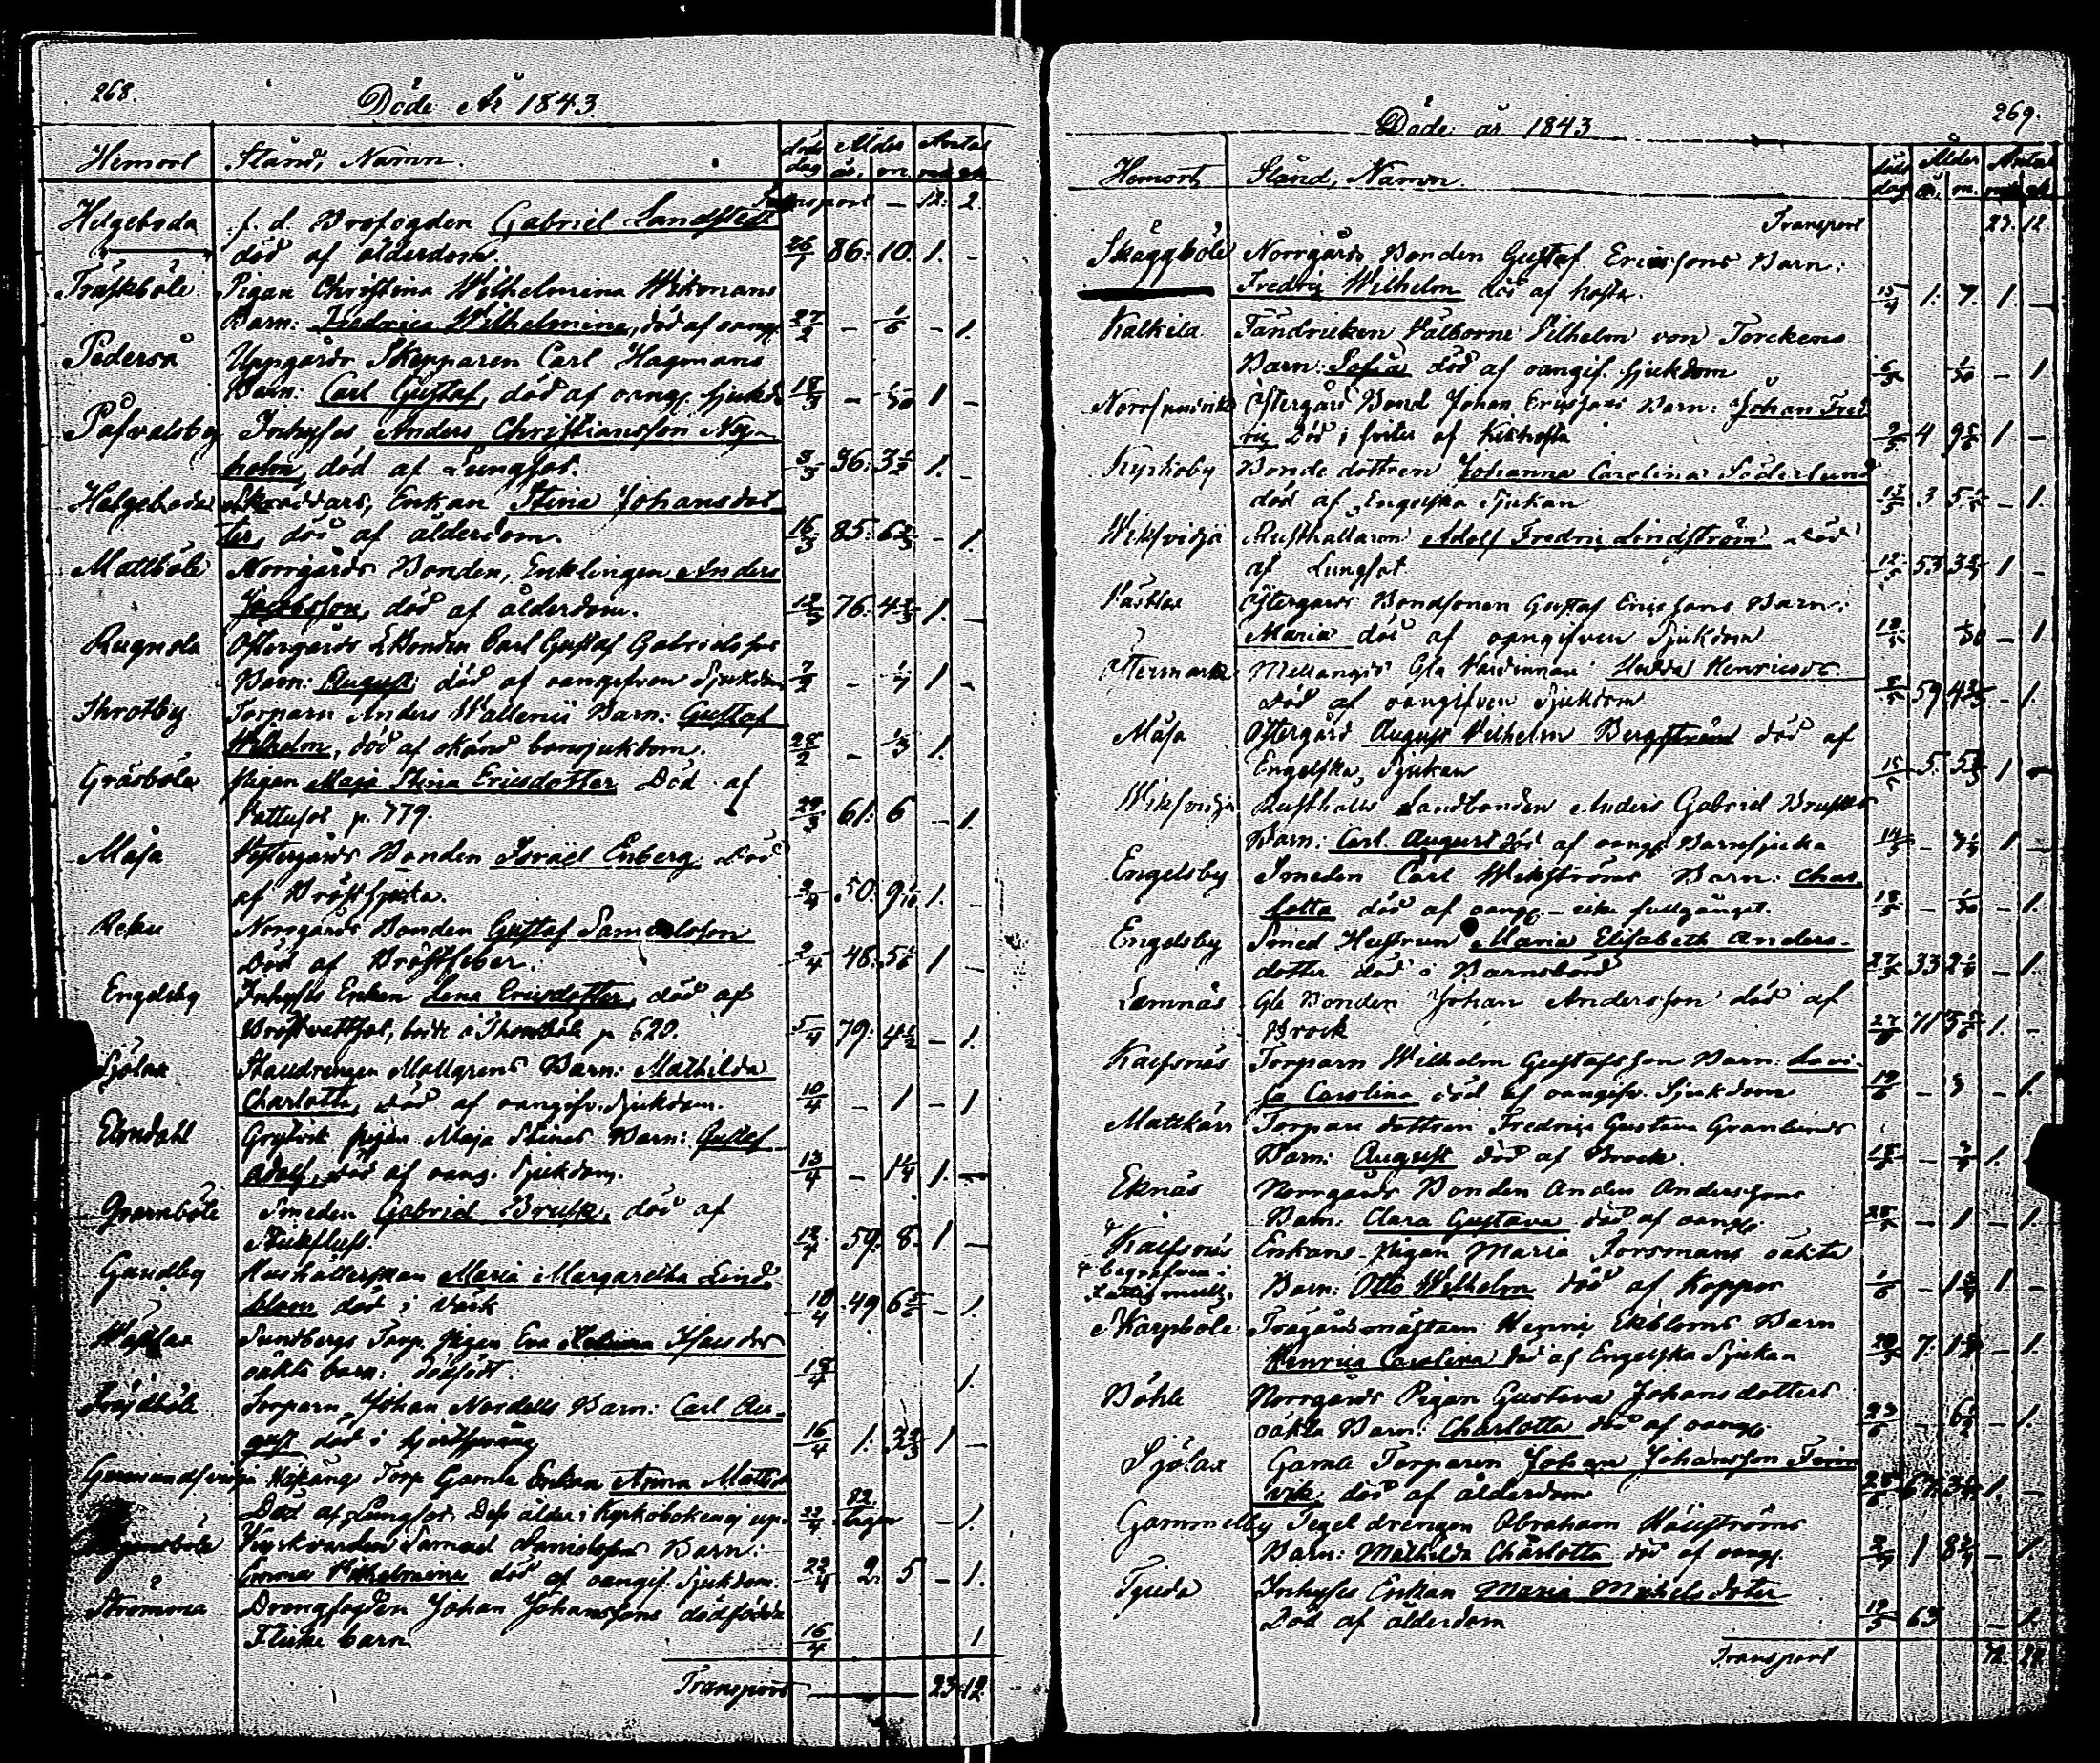 268.
Döde År 1843.
Hemort Stånd, Namn. döds dag Ålder år. m. Antal mk qk
Transport — 12. 2.
Helgeboda f. d. Brofogden Gabriel Landstedt
död af ålderdom. 26/1 86. 10. 1. -
Träskböle Pigan Christina Wilhelmina Wikmans
Barn: Fredrica Wilhelmina, död af oang. 27/2 - 1/6 - 1.
Pederså Uppgårds Skepparen Carl Hagmans
Barn: Carl Gustaf, död af oang. sjukd. 18/3 - 1/30 1 -
Påfvalsby Inhyses Anders Christiansson Ny-
holm, död af Lungsot. 5/3 36. 3 1/2 1. -
Helgeboda Skräddars, Enkan Stina Johansdot-
ter, död af ålderdom. 16/3 85. 6 2/3 - 1.
Mattböle Norrgårds Bonden, Enklingen Anders
Jacobsson, död af ålderdom. 19/3 76. 4 2/3 1. -
Rugnola Östergårds Bonden Carl Gustaf Gabrielsson
Barn: August, död af oangifven Sjukdom 7/2 - 1/4 1 -
Throtby Torparn Anders Wallerii Barn: Gustaf
Wilhelm, död af okänd barnsjukdom. 28/2 - 1/3 1.
Gräsböle Pigan Maja Stina Ericsdotter Död af
Vattusot p. 779. 29/3 61. 6 - 1.
Måsa Westergårds Bonden Israel Enberg Död
af Bröstsjuka. 2/4 50. 9 1/10 1. -
Reku Norrgårds Bonden Gustaf Samuelsson
Död af Bröstfeber. 2/4 48. 5 1/6 1 -
Engelsby Inhyses Enkan Lena Ericsdotter, död af
Bröstvattsot, p 620. 5/4 79. 4 1/2 - 1.
Sjölax Stalldrengen Mollgrens Barn: Mathilda
Charlotta, död af oangifv. Sjukdom. 10/4 - 1 - 1
Elmdahl Grytvik pigan Maja Stinas Barn: Gustaf
Adolf, död af oang. Sjukdom. 13/4 - 1 1/4 1. -
Qvarnböle Smeden Gabriel Brusk, död af
Stickfluss. 12/4 59. 8. 1. -
Gundby Hushållerskan Maria Margaretha Lind-
blom död i värk 10/4 49 6 5/6 - 1.
Sundbergs Torp. pigan Eva
oäkta barn: dödfödt. 18/4 1.
Fröjdböle Torparn Johan Nordells Barn: Carl Au-
gust död i hjertsprång 16/4 1. 3 2/3 1 -
Torp Gamla Enkan Anna Matts
Död af Lungsot. Dess ålder i Kyrkoboken ej upp- 22/4 82. tagen - 1.
Kyrkvärden Samuel Danielssons Barn:
Emma Wilhelmina död af oangif. Sjukdom. 22/4 2. 5 - 1.
Strömma Drengfogden Johan Johanssons dödfödda
Flicke barn 16/4 1
Transport — 23. 12.
269.
Döde år 1843
Hemort Stånd, Namn. döds dag Ålder å. m. Antal mk qk
Transport 23. 12.
Skäggböle Norrgårds Bonden Gustaf Ericssons Barn:
Fredric Wilhelm död af hosta. 15/4 1. 7. 1. -
Kalkila Fändricken Välborne Vilhelm von Torckens
Barn: Sofia död af oangif. sjukdom 6/5 1/30 - 1
Östergård Bond Johan Ericssons Barn: Johan Fred-
ric Död i fviter af Kikhosta 9/5 4 9 5/6 1 -
Kyrkoby Bonde dottren Johanna Carolina Söderlund
död af Engelska Sjukan 13/5 3 - 1.
Wiksvidja Rusthållaren Adolf Fredric Lindström Död
af Lungsot. 12/5 53 1 -
Östergårds Bondsonen Gustaf Ericssons Barn:
Maria död af oangifven Sjukdom 18/5 1/30 - 1
Mellangård Gla Värdinnan Hedda Henricsdr
Död af oangifven Sjukdom 59 - 1.
Måsa Östergård August Wilhelm Bergström död af
Engelska Sjukan 15/5 5. 1 -
Wiksvidja Rusthålls Landbonden Anders Gabriel Brusks
Barn: Carl August död af oang. Barnsjuka 14/5 - 1 -
Engelsby Smeden Carl Wikströms Barn: Char-
lotta död af oang. - icke fullgånget. 18/5 - 1/30 - 1.
Engelsby Smed Hustrun Maria Elisabeth Anders-
dotter död i Barnsbörd 33 - 1.
Lemnäs Gle Bonden Johan Andersson död af
Brock 27/5 71 1. -
Kalfsnäs Torparn Wilhelm Gustafsson Barn: Lovi-
sa Carolina död af oangifv. Sjukdom - - 1.
Mattkärr Torpare dottren Fredrica Gustava Granlunds
Barn: August död af Brock. - 1.
Eknäs Norrgårds Bonden Anders Anderssons
Barn: Clara Gustava död af oang. - 1 - 1.
Kalfsnäs Enkans - pigan Maria Forsmans oäkta
begrafven i Barn: Otto Wilhelm död af Koppor - 1 -
Skarpböle Trägårdsmästarn Henric Ekbloms Barn
Henrica Carolina död af Engelska Sjukan 7. - 1.
Böhle Norrgårds Pigan Gustava Johansdotters
oäkta Barn: Charlotta död af oang. - 6 1/2 - 1.
Sjölax Gamle Torparen Johan Johansson
vik. död af ålderdom 67. 1 -
Gammelby Tegel drengen Abraham Hällströms
Barn: Mathilda Charlotta död af oang. 1 - 1
Tjuda Inhyses Enkan Maria Michelsdoter
Död af ålderdom 19/5 63 - 1.
Transport